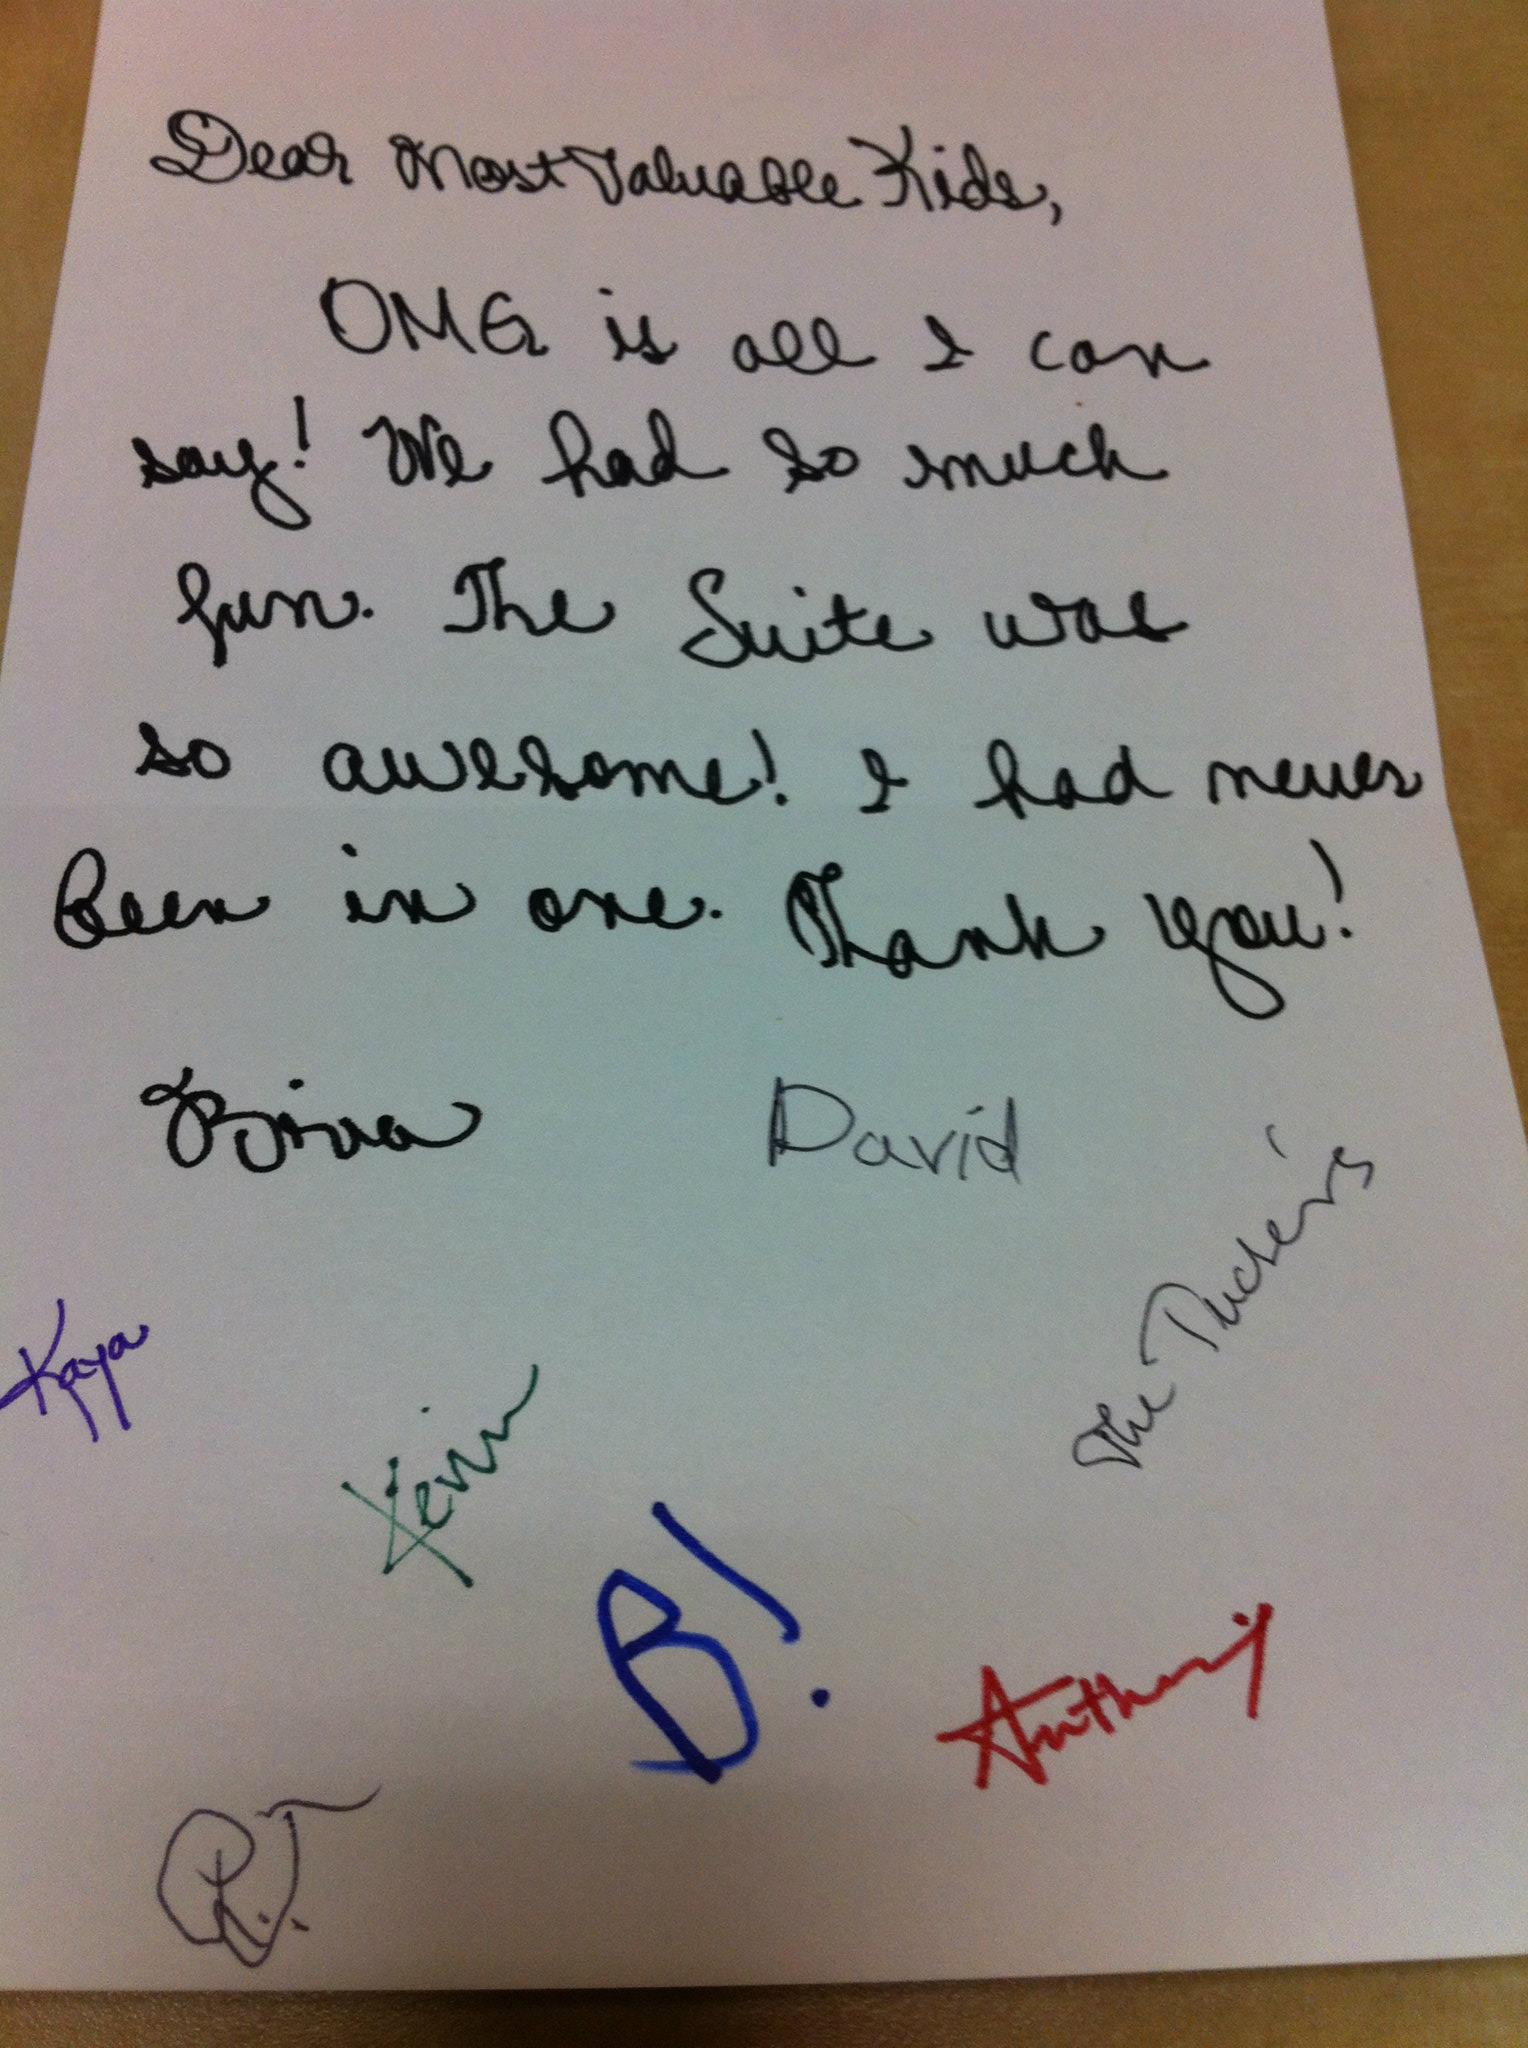 Dear Most Valuable Kids,
OMG is all I can
say! We had so much
fun. The Suite was
so awesome! I had never
been in one. Thank you!
David
The
Kaya
Kevin
B!
Anthony
R.T.